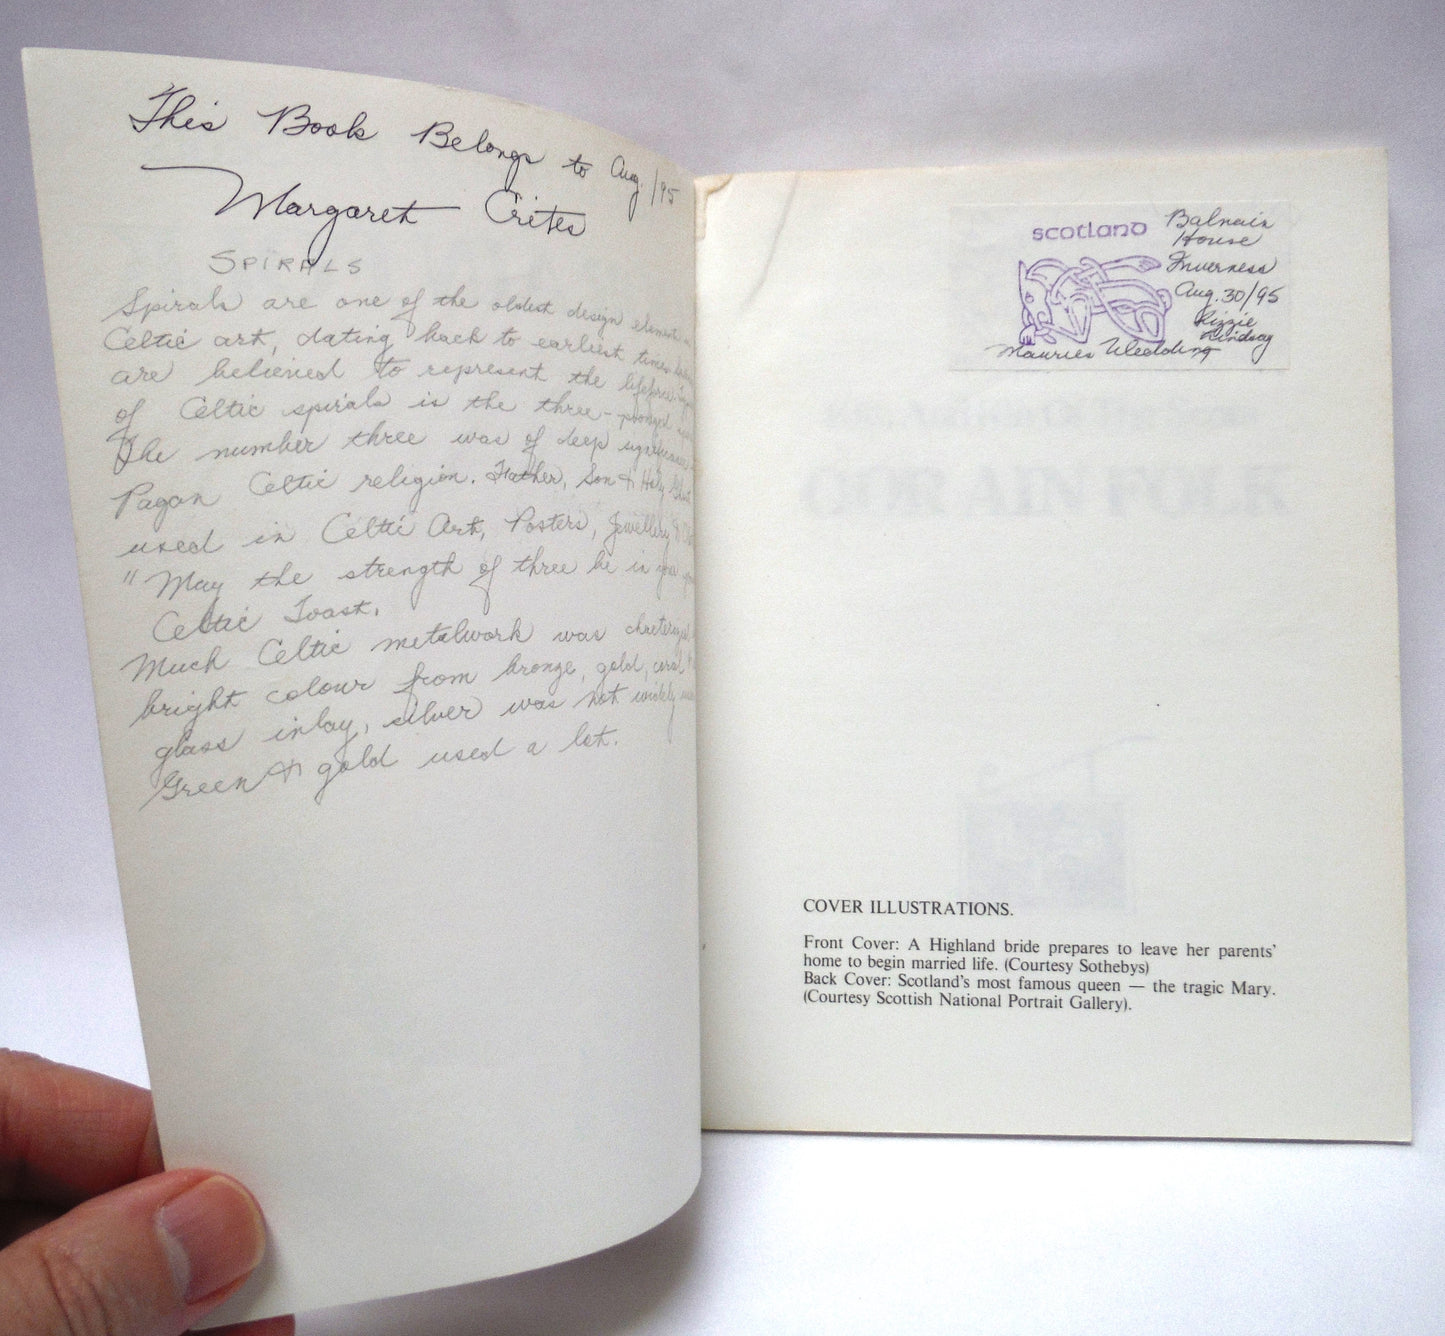 This Book Belongs to Aug. /95
Margaret Crites
SPIRALS
Spirals are one of the oldest design element
Celtic art, dating back to earliest times.
are believed to represent the lifeforce.
of Celtic spirals is the three-pronged
The number three was of deep significance
Pagan Celtic religion. Father, Son & Holy Ghost
used in Celtic Art, Posters, Jewellery &
"May the strength of three be in your
Celtic Toast.
Much Celtic metalwork was
bright colour from bronze, gold, coral &
glass inlay, silver was not widely
Green & gold used a lot.
scotland
Balnain
House
Inverness
Aug. 30/95
Lizzie
Lindsay
Mauries Wedding
OOR AIN FOLK
COVER ILLUSTRATIONS.
Front Cover: A Highland bride prepares to leave her parents'
home to begin married life. (Courtesy Sothebys)
Back Cover: Scotland's most famous queen — the tragic Mary.
(Courtesy Scottish National Portrait Gallery).